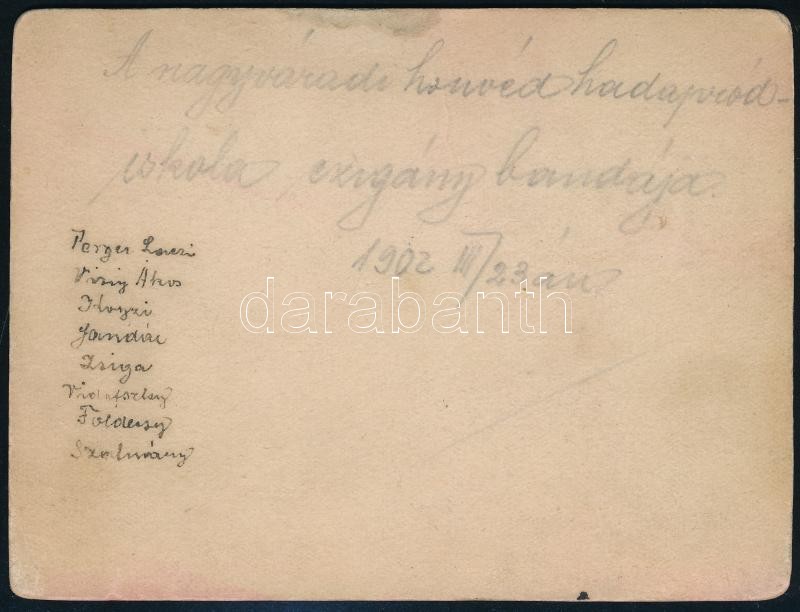 A nagyváradi honvéd hadapród-
iskola czigány bandája.
1902 III/23 án
Perger Laczi
Viziy Ákos
Jándi
Zsiga
Földessy
Szalmány
darabanth